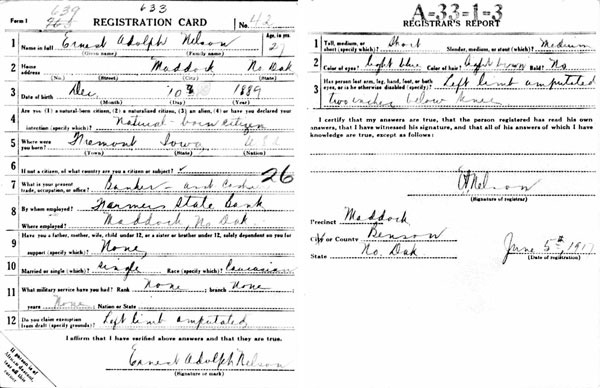 Form 1
639
633
REGISTRATION CARD
No. 42
1 Name in full Ernest Adolph Nelson
(Given name) (Family name)
Age, in yrs.
27
2 Home address Maddock No Dak
(No.) (Street) (City) (State)
3 Date of birth Dec. 10th 1889
(Month) (Day) (Year)
4 Are you (1) a natural-born citizen, (2) a naturalized citizen, (3) an alien, (4) or have you declared your
intention (specify which)? Natural-born citizen
5 Where were you born? Fremont Iowa
(Town) (State) (Nation)
6 If not a citizen, of what country are you a citizen or subject?
7 What is your present trade, occupation, or office? Banker - asst Cash 26
8 By whom employed? Farmers State Bank
Where employed? Maddock, No. Dak.
9 Have you a father, mother, wife, child under 12, or a sister or brother under 12, solely dependent on you for
support (specify which)? None
10 Married or single (which)? single Race (specify which)? Caucasian
11 What military service have you had? Rank None ; branch None
years None ; Nation or State
12 Do you claim exemption from draft (specify grounds)? Left limb amputated
I affirm that I have verified above answers and that they are true.
Ernest Adolph Nelson
(Signature or mark)
If person is of African descent, tear off this corner
A-33-1-3
REGISTRAR'S REPORT
1 Tall, medium, or short (specify which)? Short Slender, medium, or stout (which)? Medium
2 Color of eyes? Light blue Color of hair? Light brown Bald? No
3 Has person lost arm, leg, hand, foot, or both eyes, or is he otherwise disabled (specify)? Left limb amputated
two inches below knee
I certify that my answers are true, that the person registered has read his own
answers, that I have witnessed his signature, and that all of his answers of which I have
knowledge are true, except as follows:
Nelson
(Signature of registrar)
Precinct Maddock
City or County Benson
State No. Dak
June 5th 1917
(Date of registration)